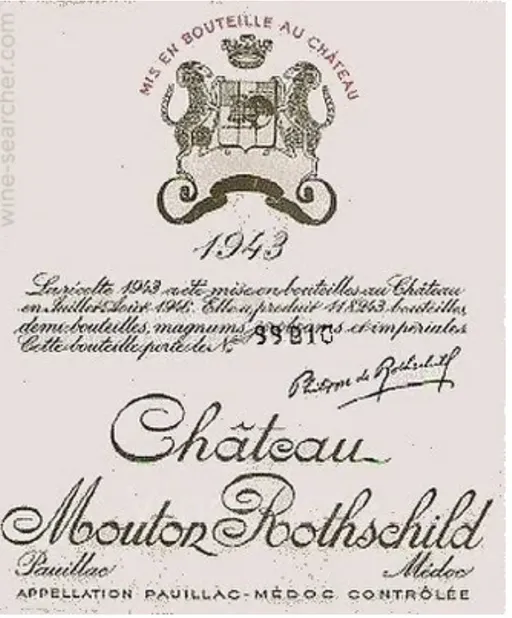 MIS EN BOUTEILLE AU CHÂTEAU
1943
La récolte 1943 a été mise en bouteilles au Château
en Juillet-Août 1946. Elle a produit 118243 bouteilles,
demi-bouteilles, magnums, et impériales
Cette bouteille porte le N°
Philippe de Rothschild
Château
Mouton Rothschild
Pauillac Médoc
APPELLATION PAUILLAC-MÉDOC CONTRÔLÉE
wine-searcher.com